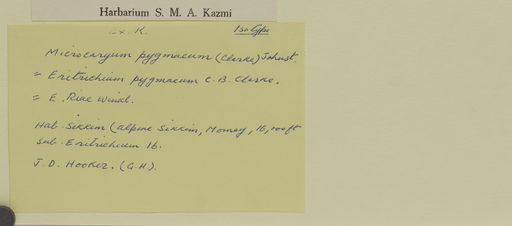 Harbarium S. M. A. Kazmi
Ex. K. Isotype
Microcaryum pygmaeum (Clarke) Johnst.
= Eritrichium pygmaeum C. B. Clarke.
= E. Winkl.
Hab. Sikkim (alpine Sikkim, Momay, 16,000 ft
sub. Eritrichium 16.
J. D. Hooker. (G.H).